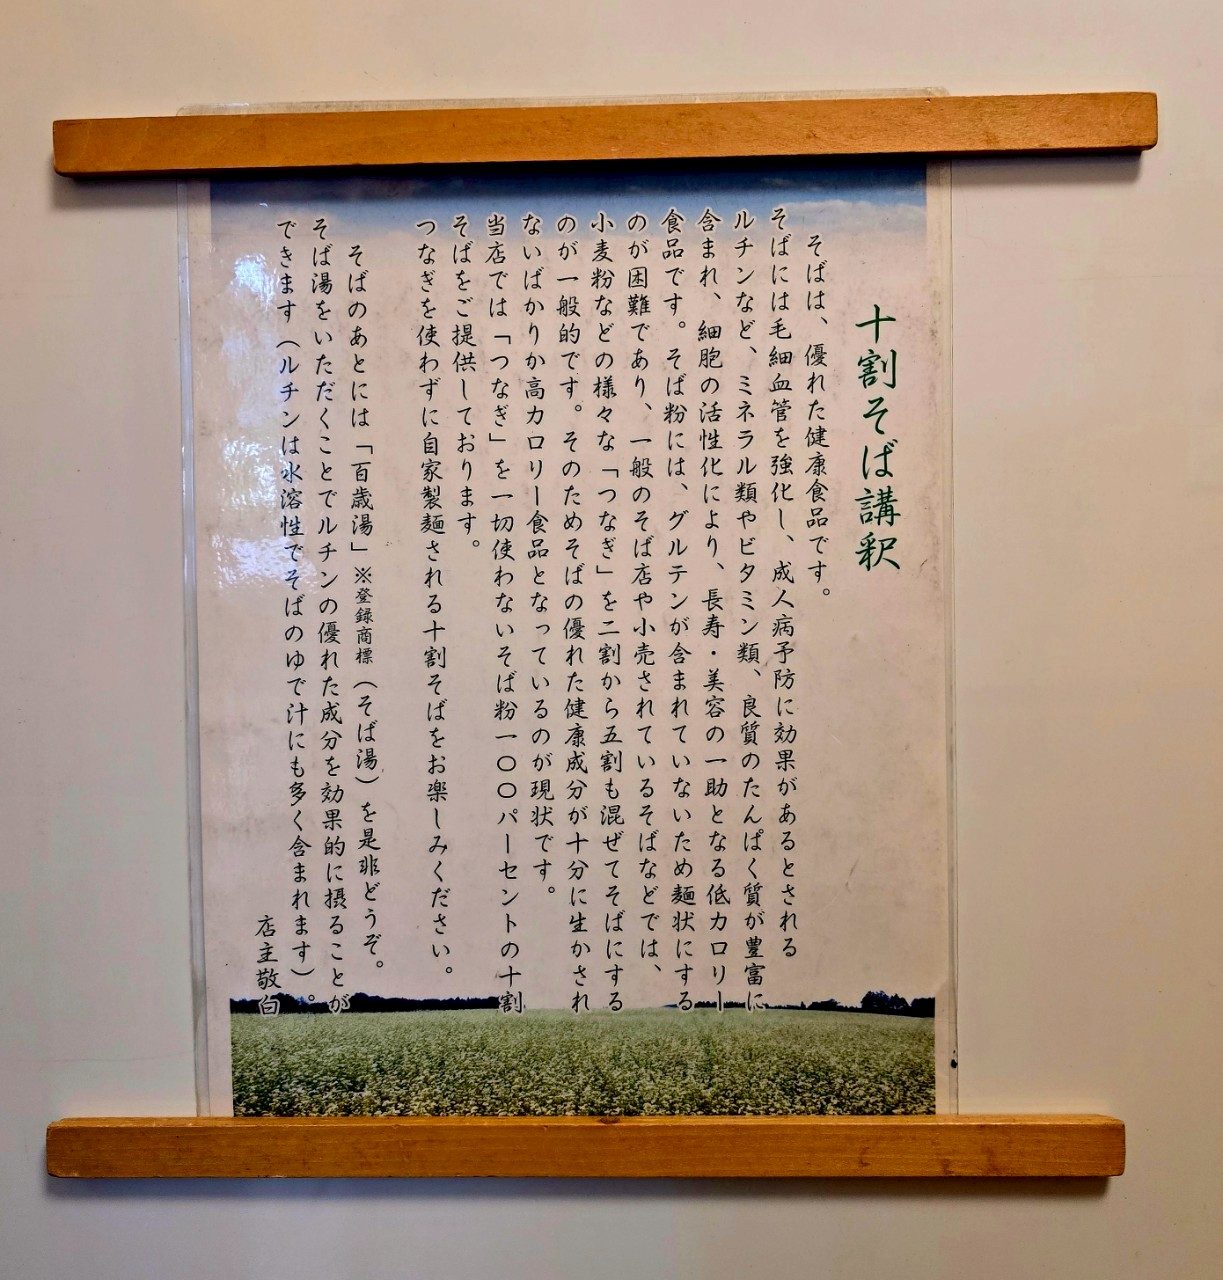 十割そば講釈
そばは、優れた健康食品です。
そばには毛細血管を強化し、成人病予防に効果があるとされる
ルチンなど、ミネラル類やビタミン類、良質のたんぱく質が豊富に
含まれ、細胞の活性化により、長寿・美容の一助となる低カロリー
食品です。そば粉には、グルテンが含まれていないため麺状にする
のが困難であり、一般のそば店や小売されているそばなどでは、
小麦粉などの様々な「つなぎ」を二割から五割も混ぜてそばにする
のが一般的です。そのためそばの優れた健康成分が十分に生かされ
ないばかりか高カロリー食品となっているのが現状です。
当店では「つなぎ」を一切使わないそば粉一〇〇パーセントの十割
そばをご提供しております。
つなぎを使わずに自家製麺される十割そばをお楽しみください。
そばのあとには「百歳湯」※登録商標（そば湯）を是非どうぞ。
そば湯をいただくことでルチンの優れた成分を効果的に摂ることが
できます（ルチンは水溶性でそばのゆで汁にも多く含まれます）。
店主敬白